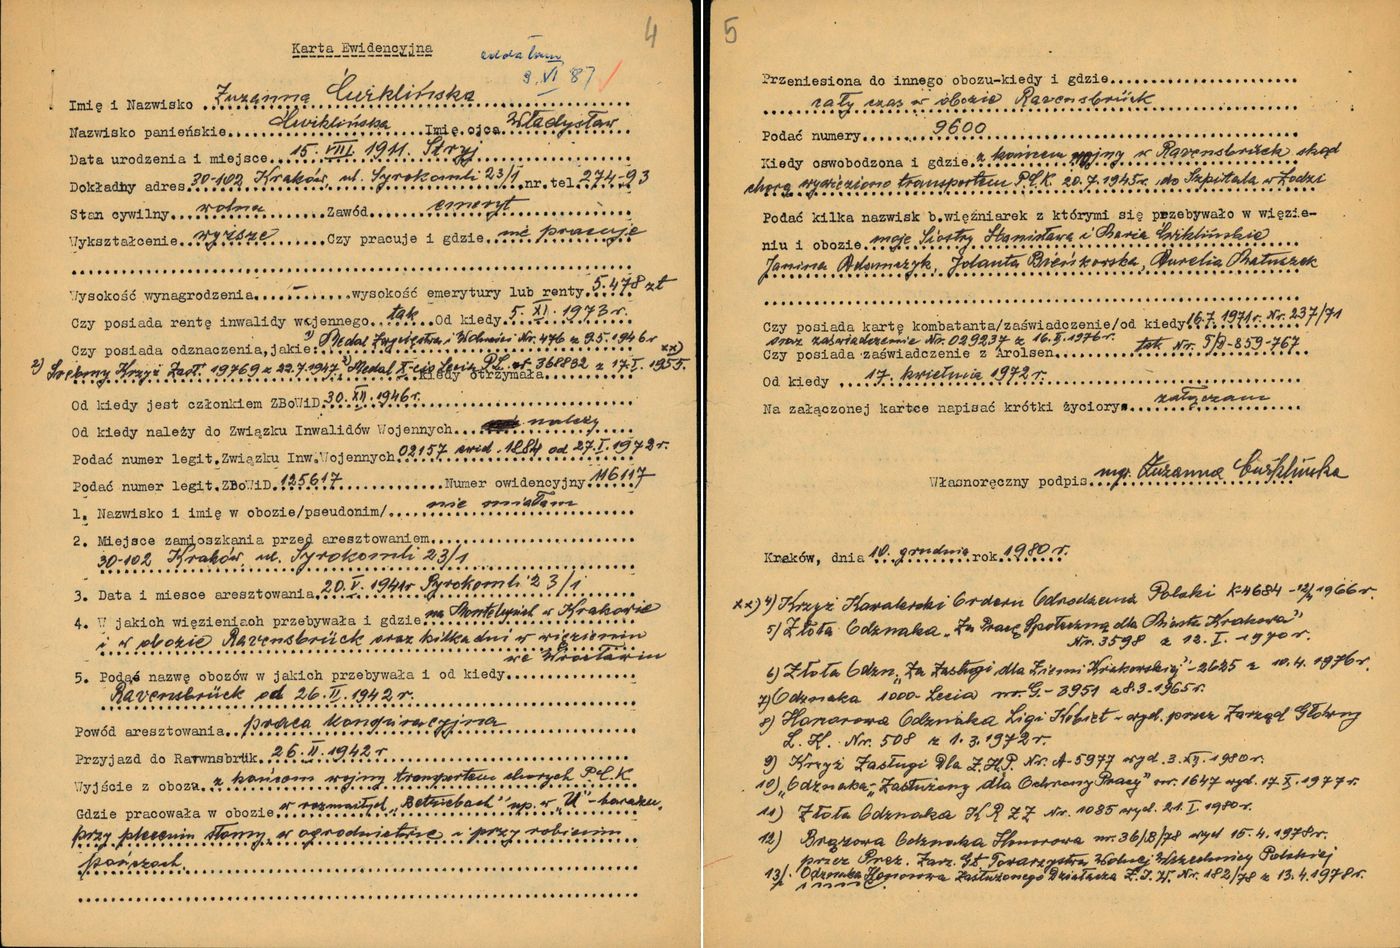 4
Karta Ewidencyjna
oddałam
9. VI 87
Imię i Nazwisko Zuzanna Ćwiklińska
Nazwisko panieńskie Ćwiklińska Imię ojca Władysław
Data urodzenia i miejsce 15. VIII. 1911. Stryj
Dokładny adres 30-102 Kraków, ul. Syrokomli 23/1 nr.tel. 274-93
Stan cywilny wolna Zawód emeryt
Wykształcenie wyższe Czy pracuje i gdzie nie pracuje
Wysokość wynagrodzenia - wysokość emerytury lub renty 5.478 zł
Czy posiada rentę inwalidy wojennego tak Od kiedy 5. XI. 1973 r.
Czy posiada odznaczenia,jakie: 1) Medal Zwycięstwa i Wolności Nr. 476 z 9.5.1946 r xx)
2) Srebrny Krzyż Zasł. 19769 z 22.7.1947 3) Medal X-cio Lecia P.L. nr. 368832 z 17.I.1955.
kiedy otrzymała
Od kiedy jest członkiem ZBoWiD 30. XII. 1946 r.
Od kiedy należy do Związku Inwalidów Wojennych należy
Podać numer legit.Związku Inw.Wojennych 02157 ewid. 1884 od 27.I.1972 r.
Podać numer legit.ZBoWiD 125617 Numer ewidencyjny 116117
1. Nazwisko i imię w obozie/pseudonim/ nie miałam
2. Miejsce zamieszkania przed aresztowaniem
30-102 Kraków, ul. Syrokomli 23/1
3. Data i miesce aresztowania 20. V. 1941 r Syrokomli 23/1
4. W jakich więzieniach przebywała i gdzie na Montelupich w Krakowie
i w obozie Ravensbrück oraz kilka dni w więzieniu
we Wrocławiu
5. Podać nazwę obozów w jakich przebywała i od kiedy
Ravensbrück od 26. II. 1942 r.
Powód aresztowania praca konspiracyjna
Przyjazd do Ravensbrük 26. II. 1942 r
Wyjście z oboza z końcem wojny transportem chorych P.C.K.
Gdzie pracowała w obozie w rozmaitych "Betriebach" np. w "U"-baraku,
przy pleceniu słomy, w ogrodnictwie i przy robieniu
pończoch.
5
Przeniesiona do innego obozu-kiedy i gdzie
cały czas w obozie Ravensbrück
Podać numery 9600
Kiedy oswobodzona i gdzie z końcem wojny w Ravensbrück skąd
chorą wywieziono transportem P.C.K. 20.7.1945 r. do Szpitala w Łodzi
Podać kilka nazwisk b.więźniarek z którymi się przebywało w więzie-
niu i obozie moje Siostry Stanisława i Maria Ćwiklińskie
Janina Adamczyk, Jolanta Bieńkowska, Aurelia Matuszek
Czy posiada kartę kombatanta/zaświadczenie/od kiedy 16.7.1971 r. Nr. 237/71
oraz zaświadczenie Nr. 029237 z 16.II.1976 r.
Czy posiada zaświadczenie z Arolsen tak Nr. T/D-859-767
Od kiedy 17. kwietnia 1972 r.
Na załączonej kartce napisać krótki życiorys załączam
Własnoręczny podpis mgr Zuzanna Ćwiklińska
Kraków, dnia 10. grudnia rok 1980 r.
xx) 4) Krzyż Kawalerski Orderu Odrodzenia Polski K-4684 - 12/2 1966 r.
5) Złota Odznaka "Za Pracę Społeczną dla Miasta Krakowa"
Nr. 3598 z 12. I. 1970 r.
6) Złota Odzn. "Za Zasługi dla Ziemi Krakowskiej" - 2625 z 10.4.1976 r.
7) Odznaka 1000-Lecia nr. G.-3951 z 8.3-1965 r.
8) Honorowa Odznaka Ligi Kobiet - wyd. przez Zarząd Główny
L.K. Nr. 508 z 1.3.1972 r.
9) Krzyż Zasługi Dla Z.H.P. Nr. A-5977 wyd 3. XII. 1980 r.
10) Odznaka "Zasłużony dla Ochrony Pracy" nr. 1647 wyd. 17.X.1977 r.
11) Złota Odznaka K R Z Z Nr. 1085 wyd. 21. I. 1980 r.
12) Brązowa Odznaka Honorowa nr. 36/B/78 wyd 15.4.1978 r.
przez Prez. Zarz. Gł. Towarzystwa Wolnej Wszechnicy Polskiej
13) Odznaka Honorowa Zasłużonego Działacza Z.I.W. Nr. 182/78 z 13.4.1978 r.